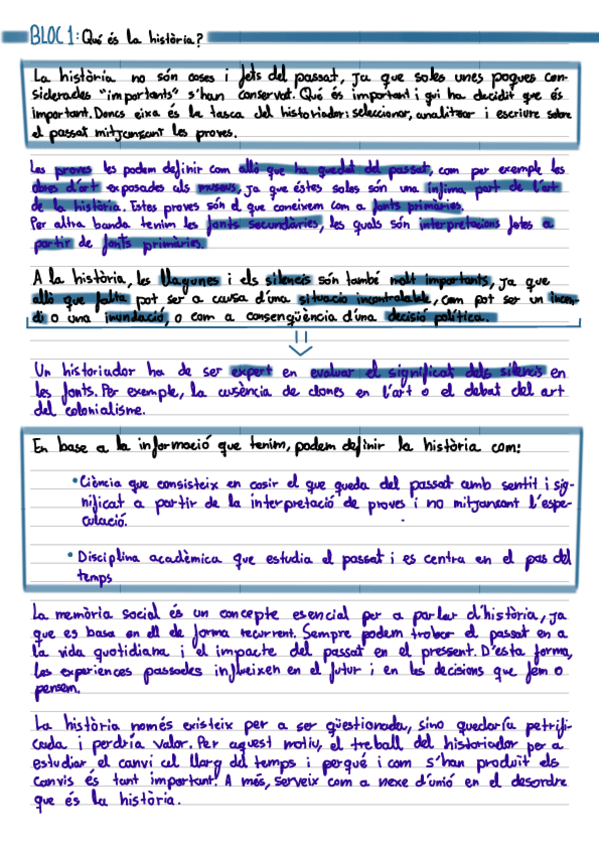 BLOC 1: Qué és la història?
La història no són coses i fets del passat, ja que soles unes poques con-
siderades "importants" s'han conservat. Qué és important i qui ha decidit que és
important. Doncs eixa és la tasca del historiador: seleccionar, analitzar i escriure sobre
el passat mitjançant les proves.
Les proves les podem definir com allò que ha quedat del passat, com per exemple les
obres d'art exposades als museus, ja que éstes soles són una ínfima part de l'art
de la història. Estes proves són el que coneixem com a fonts primàries.
Per altra banda tenim les fonts secundàries, les quals són interpretacions fetes a
partir de fonts primàries.
A la història, les llagunes i els silencis són també molt importants, ja que
allò que falta pot ser a causa d'una situacio incontrolable, com pot ser un incen-
di o una inundació, o com a consenqüència d'una decisió política.
Un historiador ha de ser expert en evaluar el significat dels silencis en
les fonts. Per exemple, la ausència de dones en l'art o el debat del art
del colonialisme.
En base a la informació que tenim, podem definir la història com:
• Ciència que consisteix en cosir el que queda del passat amb sentit i sig-
nificat a partir de la interpretació de proves i no mitjançant l'espe-
culació.
• Disciplina acadèmica que estudia el passat i es centra en el pas del
temps
La memòria social és un concepte esencial per a parlar d'història, ja
que es basa en ell de forma recurrent. Sempre podem trobar el passat en a
la vida quotidiana i el impacte del passat en el pressent. D'esta forma,
les experiences passades influeixen en el futur i en les decisions que fem o
pensem.
La història només existeix per a ser qüestionada, sino quedaría petrifi-
cada i perdria valor. Per aquest motiu, el treball del historiador per a
estudiar el canvi al llarg del temps i perqué i com s'han produït els
canvis és tant important. A més, serveix com a nexe d'unió en el desordre
que és la història.